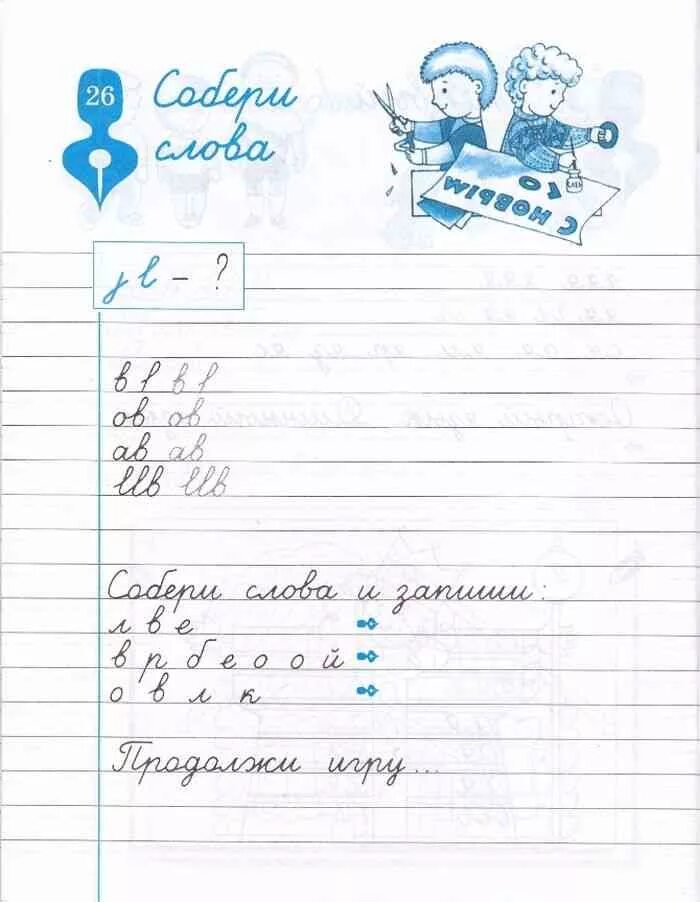 26
Собери
слова
С НОВЫМ
ГО
– ?
в в
ов ов
ав ав
Собери слова и запиши:
л в е
в р б е о о й
о в л к
Продолжи игру...